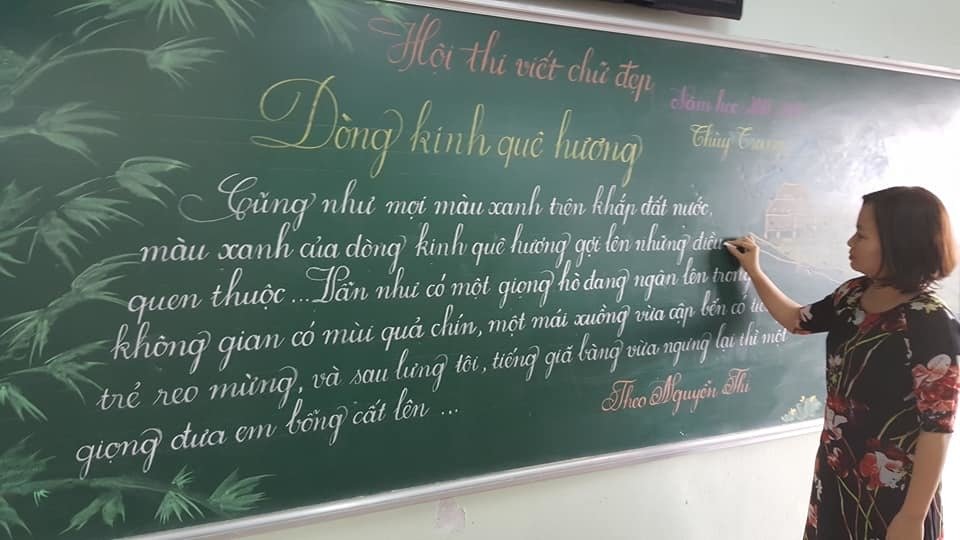 Hội thi viết chữ đẹp
Năm học
Thùy Trang
Dòng kinh quê hương
Cũng như mọi màu xanh trên khắp đất nước,
màu xanh của dòng kinh quê hương gợi lên những điều
quen thuộc...Vẫn như có một giọng hò đang ngân lên trong
không gian có mùi quả chín, một mái xuồng vừa cập bến có
trẻ reo mừng, và sau lưng tôi, tiếng giã bàng vừa ngưng lại thì một
giọng đưa em bỗng cất lên ...
Theo Nguyễn Thi